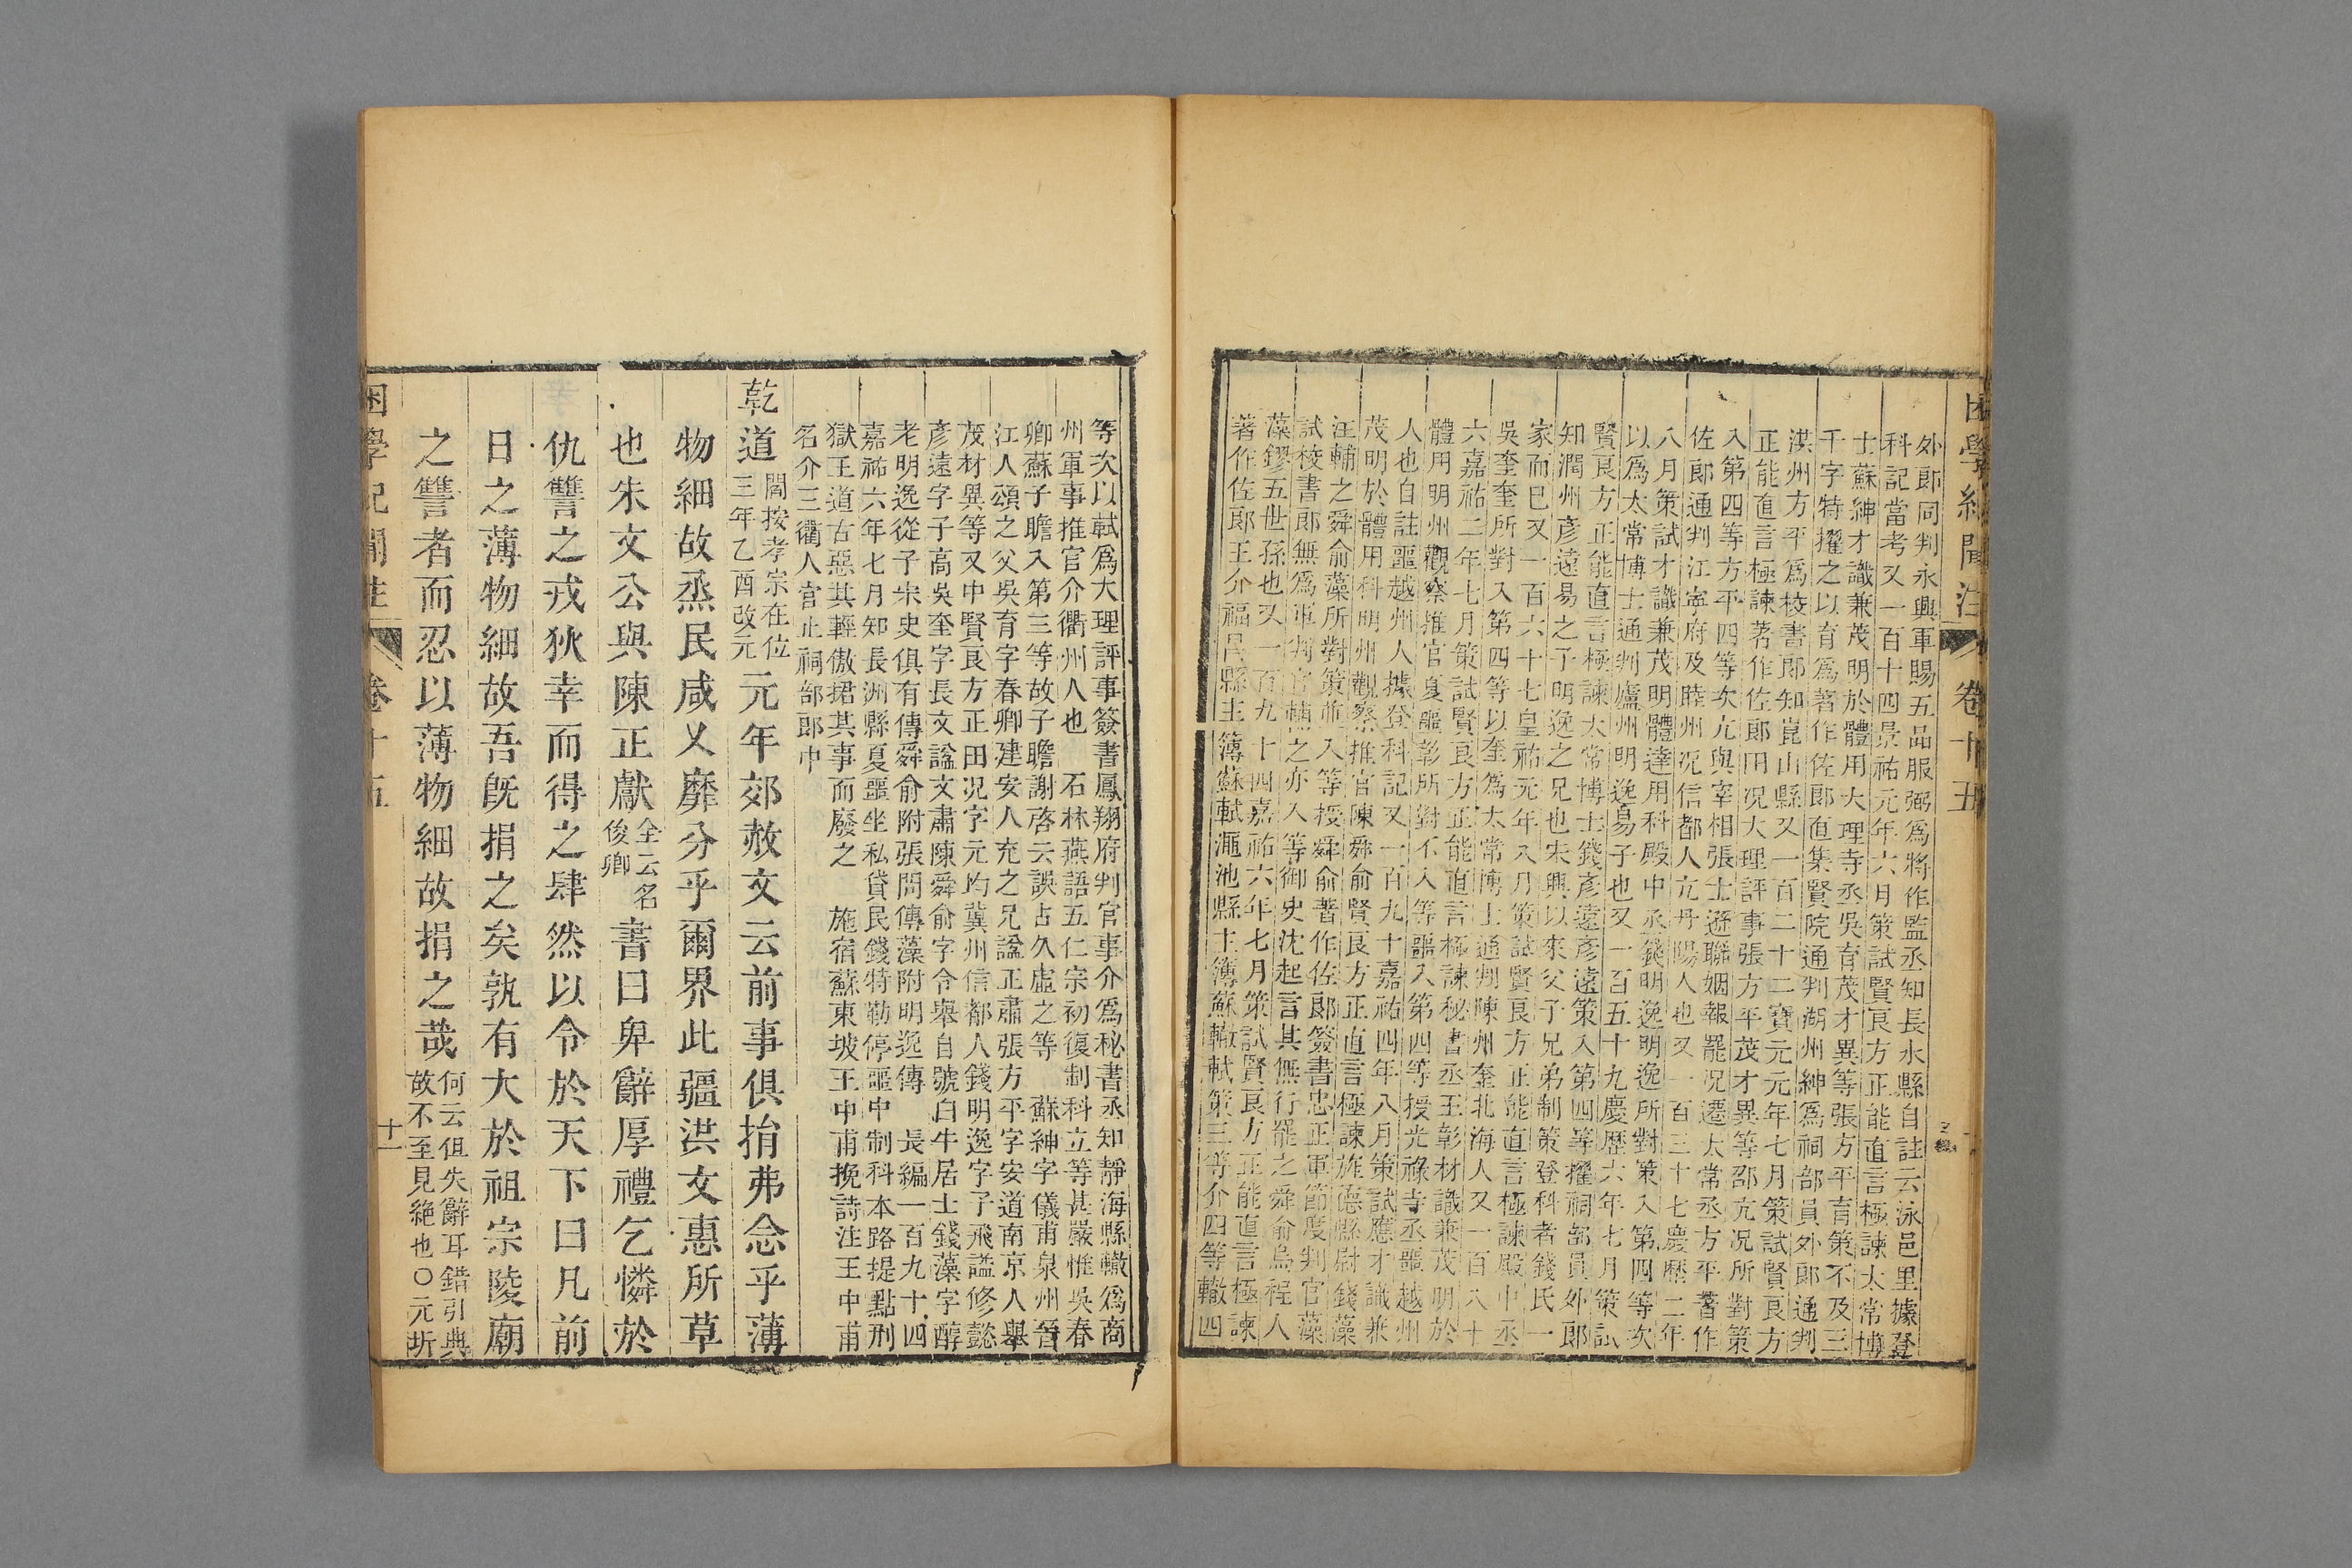 困學紀聞注 卷十五
外郎同判永興軍賜五品服弼爲將作監丞知長水縣自註云泳邑里據登
科記當考又一百十四景祐元年六月策試賢良方正能直言極諫太常博
士蘇紳才識兼茂明於體用大理寺丞吳育茂才異等張方平育策不及三
千字特擢之以育爲著作佐郎直集賢院通判湖州紳爲祠部員外郎通判
洪州方平爲校書郎知崑山縣又一百二十二寶元元年七月策試賢良方
正能直言極諫著作佐郎田況大理評事張方平茂才異等邵亢況所對策
入第四等方平四等次亢與宰相張士遜聯姻報罷況遷太常丞方平著作
佐郎通判江寧府及睦州況信都人亢丹陽人也又一百三十七慶歷二年
八月策試才識兼茂明體達用科殿中丞錢明逸明逸所對策入第四等次
以爲太常博士通判廬州明逸易子也又一百五十九慶歷六年七月策試
賢良方正能直言極諫太常博士錢彥遠彥遠策入第四等擢祠部員外郎
知潤州彥遠易之子明逸之兄也宋興以來父子兄弟制策登科者錢氏一
家而已又一百六十七皇祐元年八月策試賢良方正能直言極諫殿中丞
吳奎奎所對入第四等以奎爲太常博士通判陳州奎北海人又一百八十
六嘉祐二年七月策試賢良方正能直言極諫秘書丞王彰材識兼茂明於
體用明州觀察推官夏噩彰所對不入等噩入第四等授光祿寺丞噩越州
人也自註噩越州人據登科記又一百九十嘉祐四年八月策試應才識兼
茂明於體用科明州觀察推官陳舜俞賢良方正直言極諫旌德縣尉錢藻
汪輔之舜俞藻所對策並入等授舜俞著作佐郎簽書忠正軍節度判官藻
試校書郎無爲軍判官輔之亦入等御史沈起言其無行罷之舜俞烏程人
藻鏐五世孫也又一百九十四嘉祐六年七月策試賢良方正能直言極諫
著作佐郎王介福昌縣主簿蘇軾澠池縣主簿蘇轍軾策三等介四等轍四
等次以軾爲大理評事簽書鳳翔府判官事介爲秘書丞知靜海縣轍爲商
州軍事推官介衢州人也 石林燕語五仁宗初復制科立等甚嚴惟吳春
卿蘇子瞻入第三等故子瞻謝啓云誤占久虛之等 蘇紳字儀甫泉州晉
江人頌之父吳育字春卿建安人充之兄諡正肅張方平字安道南京人舉
茂材異等又中賢良方正田況字元均冀州信都人錢明逸字子飛諡修懿
彥遠字子高吳奎字長文諡文肅陳舜俞字令舉自號白牛居士錢藻字醇
老明逸從子宋史俱有傳舜俞附張問傳藻附明逸傳 長編一百九十四
嘉祐六年七月知長洲縣夏噩坐私貸民錢特勒停噩中制科本路提點刑
獄王道古惡其輕傲捃其事而廢之 施宿蘇東坡王中甫挽詩注王中甫
名介三衢人官止祠部郎中
乾道閻按孝宗在位三年乙酉改元元年郊赦文云前事俱捐弗念乎薄
物細故烝民咸乂靡分乎爾界此疆洪文惠所草
也朱文公與陳正獻全云名俊卿書曰卑辭厚禮乞憐於
仇讐之戎狄幸而得之肆然以令於天下曰凡前
日之薄物細故吾旣捐之矣孰有大於祖宗陵廟
之讐者而忍以薄物細故捐之哉何云但失辭耳錯引典故不至見絕也〇元圻
困學紀聞注 卷十五 十一